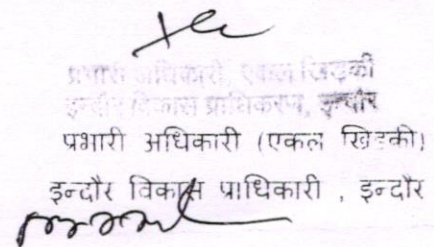 प्रभारी अधिकारी, एकल खिड़की
इन्दौर विकास प्राधिकरण, इन्दौर
प्रभारी अधिकारी (एकल खिड़की)
इन्दौर विकास प्राधिकारी , इन्दौर